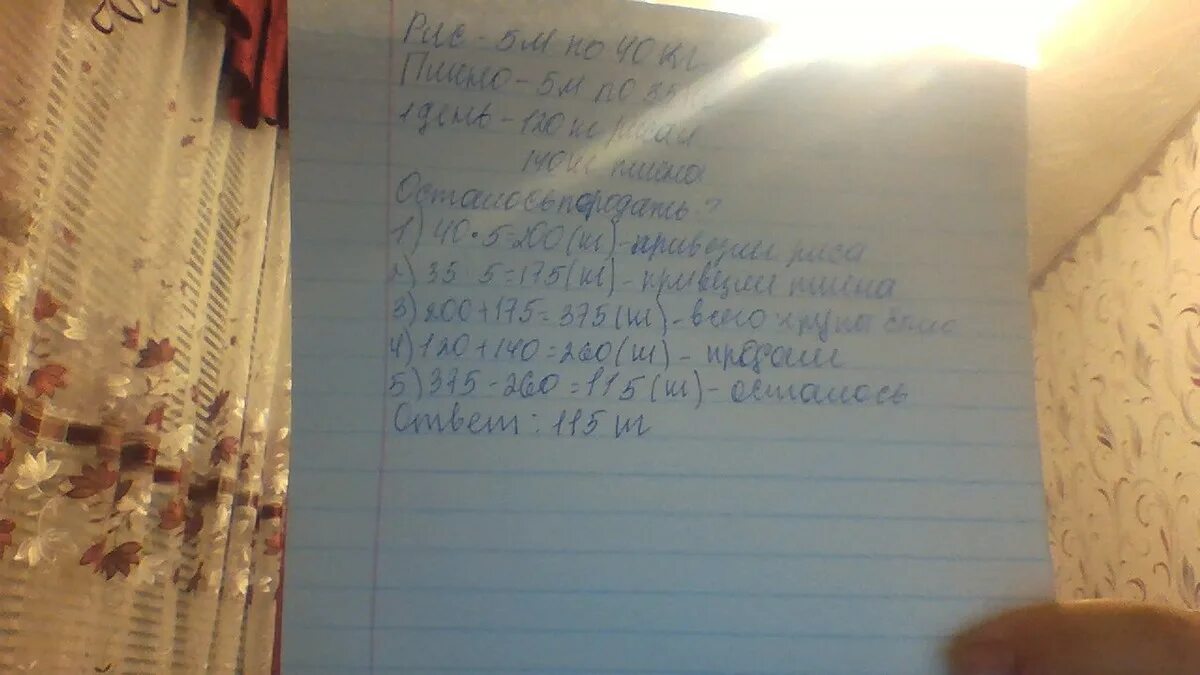 Рис - 5м по 40 кг
Пшено - 5м по 35
1 день - 120 кг риса и
140 кг пшена
Осталось продать?
1) 40•5=200(кг) - привезли риса
2) 35•5=175(кг) - привезли пшена
3) 200+175=375(кг) - всего крупы было
4) 120+140=260(кг) - продали
5) 375-260=115(кг) - осталось
Ответ: 115 кг